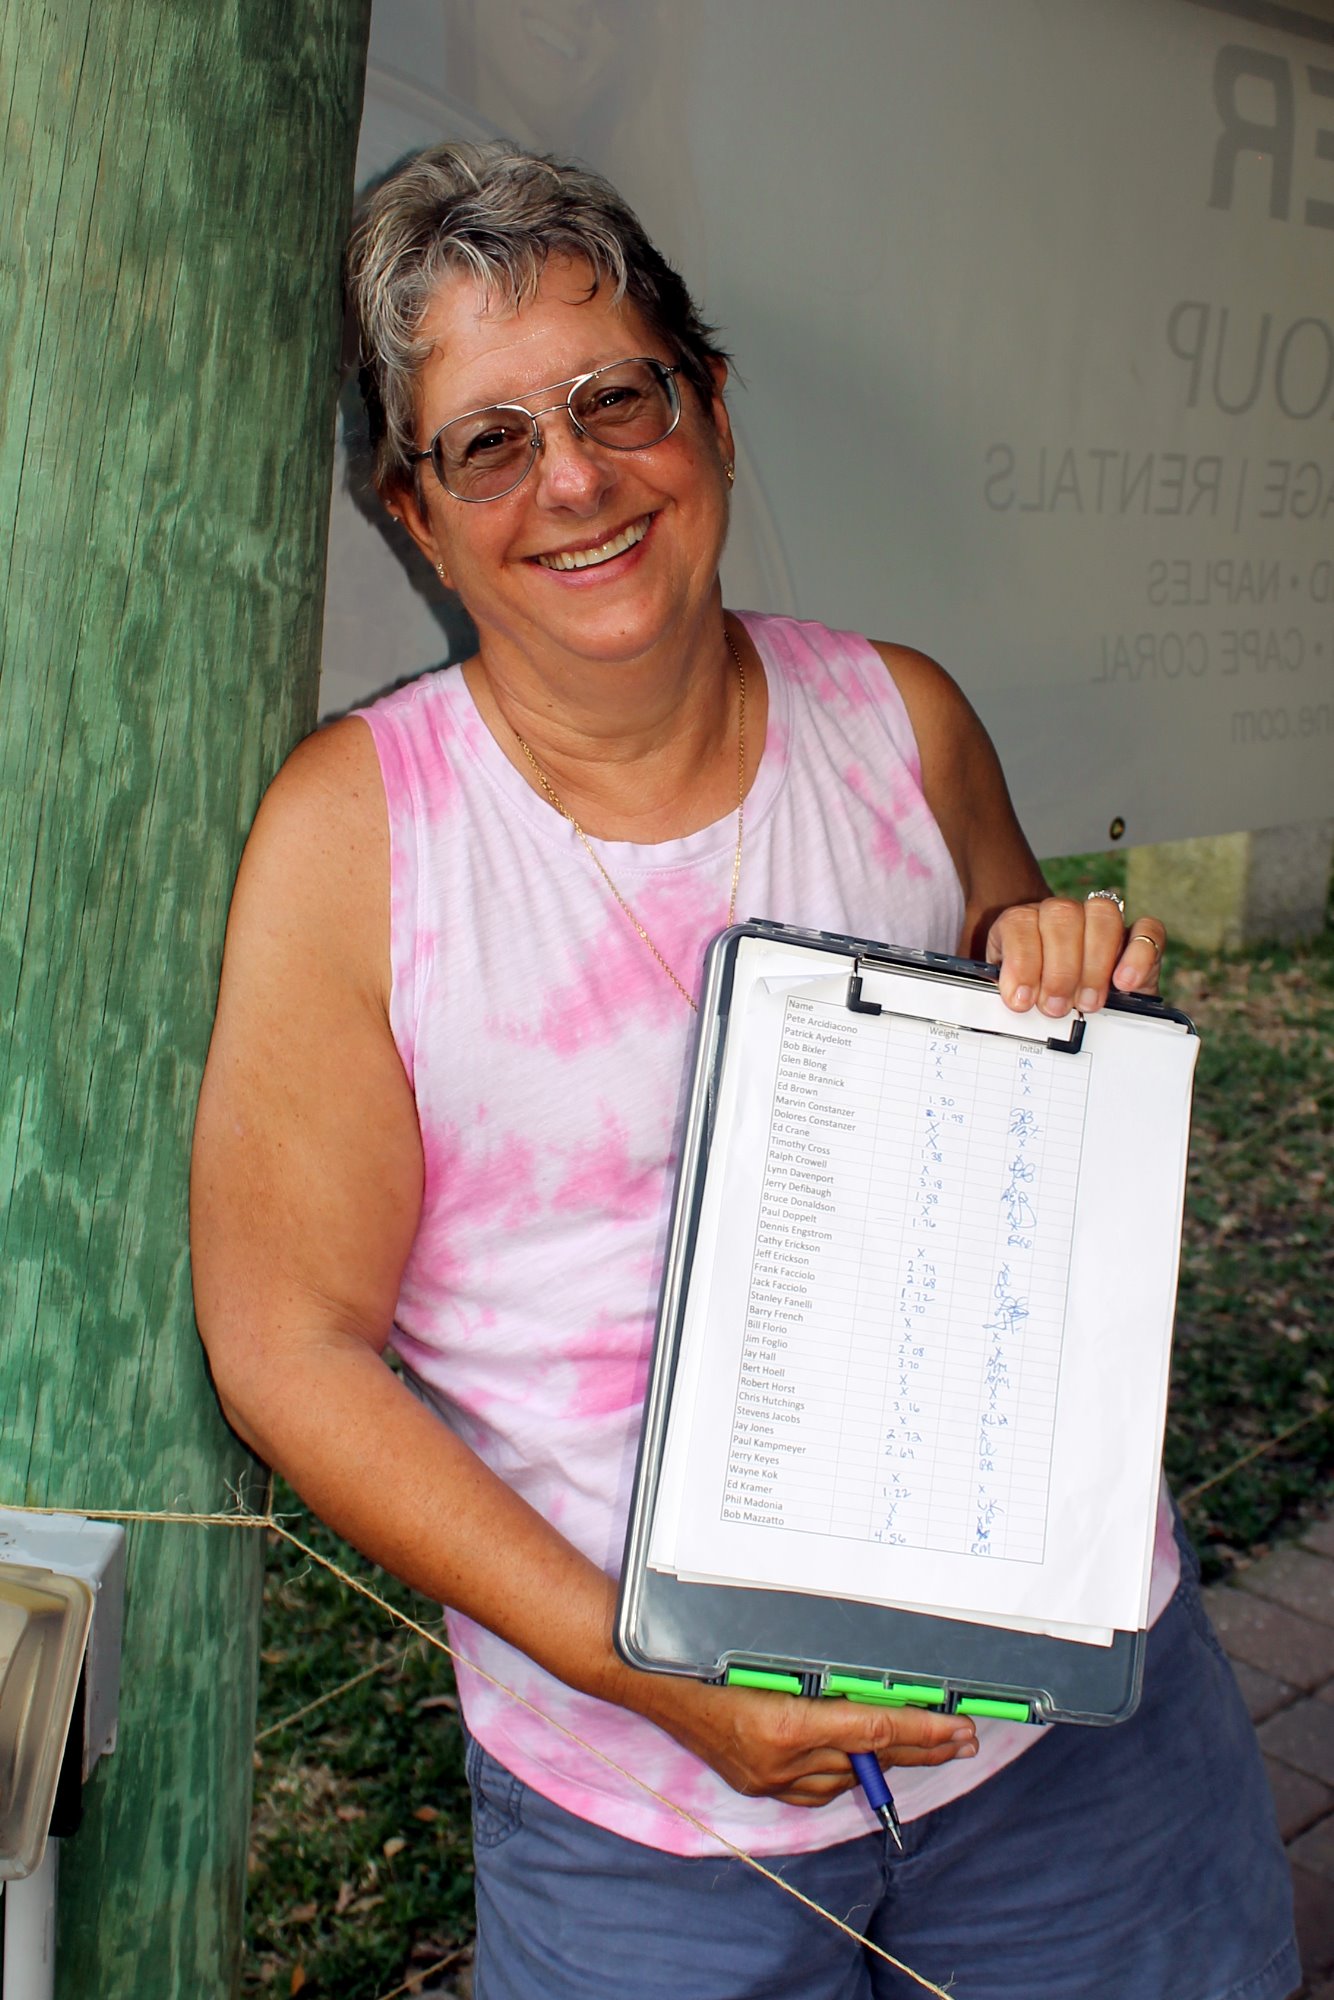 ER
OUP
AGE | RENTALS
D • NAPLES
• CAPE CORAL
ne.com
Name Weight Initial
Pete Arcidiacono 2.54 PA
Patrick Aydelott x x
Bob Bixler x x
Glen Blong
Joanie Brannick 1.30
Ed Brown 1.98
Marvin Constanzer X x
Dolores Constanzer X x
Ed Crane 1.38
Timothy Cross x
Ralph Crowell 3.18
Lynn Davenport 1.58
Jerry Defibaugh x x
Bruce Donaldson 1.76
Paul Doppelt
Dennis Engstrom x x
Cathy Erickson 2.74
Jeff Erickson 2.68
Frank Facciolo 1.72
Jack Facciolo 2.70
Stanley Fanelli x x
Barry French x x
Bill Florio 2.08
Jim Foglio 3.70
Jay Hall x x
Bert Hoell x x
Robert Horst 3.16 RLH
Chris Hutchings x x
Stevens Jacobs 2.72
Jay Jones 2.64 PA
Paul Kampmeyer
Jerry Keyes x x
Wayne Kok 1.22 WK
Ed Kramer x x
Phil Madonia x x
Bob Mazzatto 4.56 RM